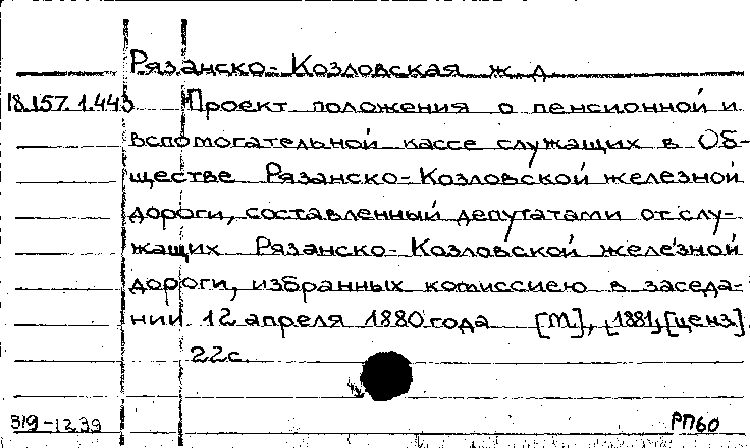 Рязанско-Козловская ж. д.
18.157.1.443 Проект положения о пенсионной и
вспомогательной кассе служащих в Об-
ществе Рязанско-Козловской железной
дороги, составленный депутатами от слу-
жащих Рязанско-Козловской железной
дороги, избранных комиссиею в заседа-
нии 12 апреля 1880 года [М.], [1881, [ценз.]
22с.
319-1239 РП60